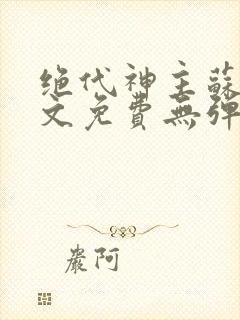 绝代神主蘇
文免費無彈
嚴阿